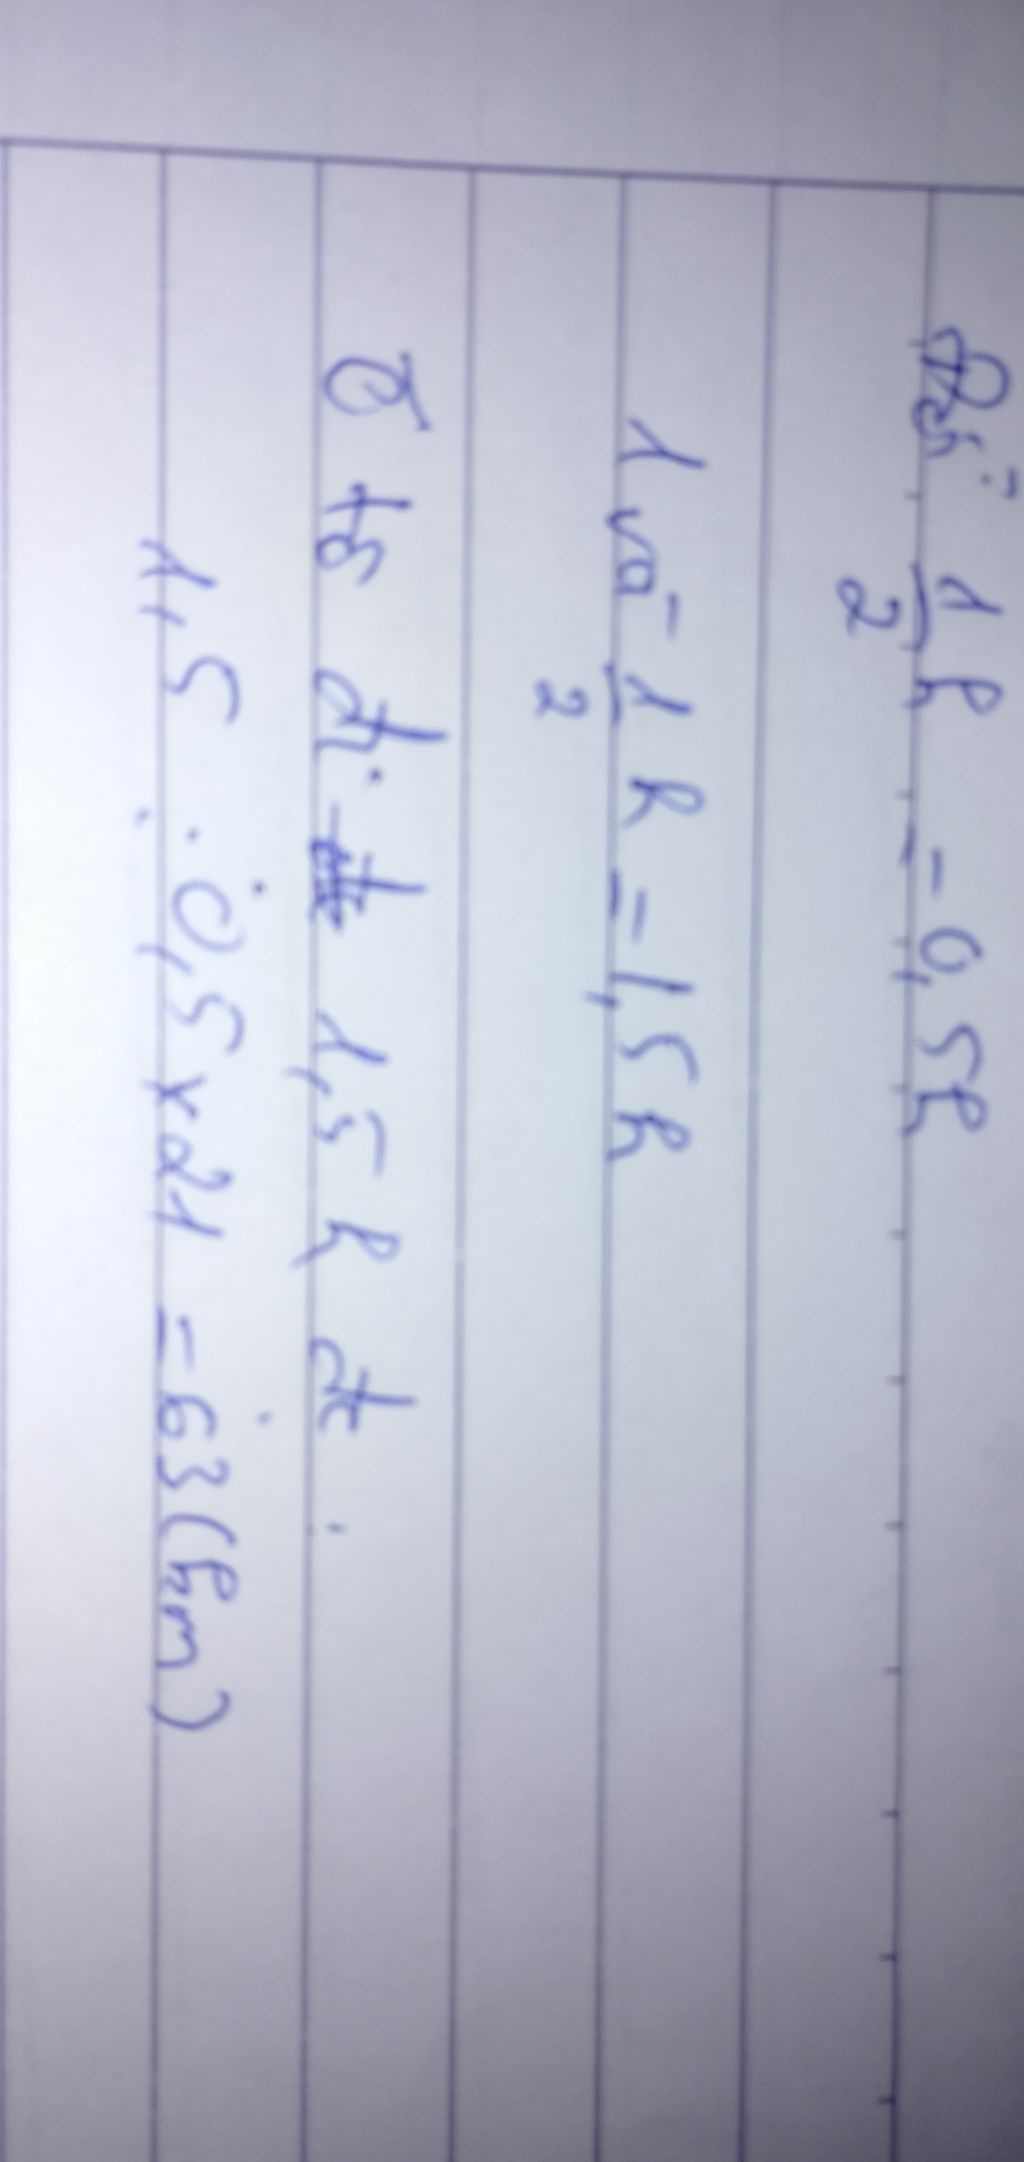 Đổi 1/2 h = 0,5h
1 và 1/2 h = 1,5h
Ô tô đi 1,5 h đc
1,5 : 0,5 x 21 = 63 (km)